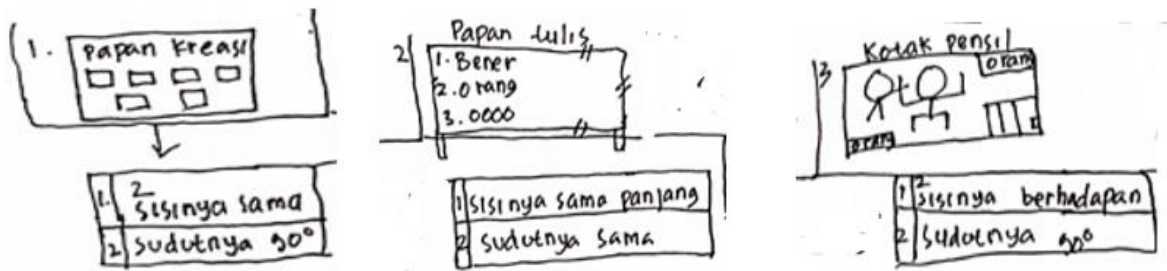 1.
papan kreasi
1. 2 sisinya sama
2 sudutnya 90°
2
Papan tulis
1. Bener
2. orang
3. 0000
1 sisinya sama panjang
2 sudutnya sama
3
Kotak pensil
orang
orang
1 2 sisinya berhadapan
2 sudutnya 90°